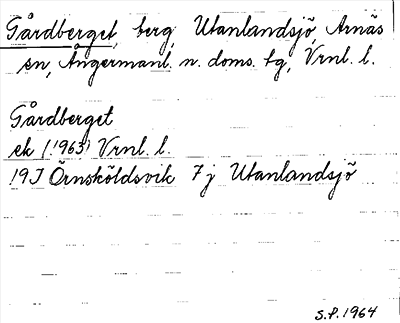 Gårdberget, berg, Utanlandsjö, Arnäs
sn, Ångermanl. n. doms. tg, Vrnl. l.
Gårdberget
ek (1963) Vrnl. l.
19J Örnsköldsvik 7j Utanlandsjö
S.P. 1964